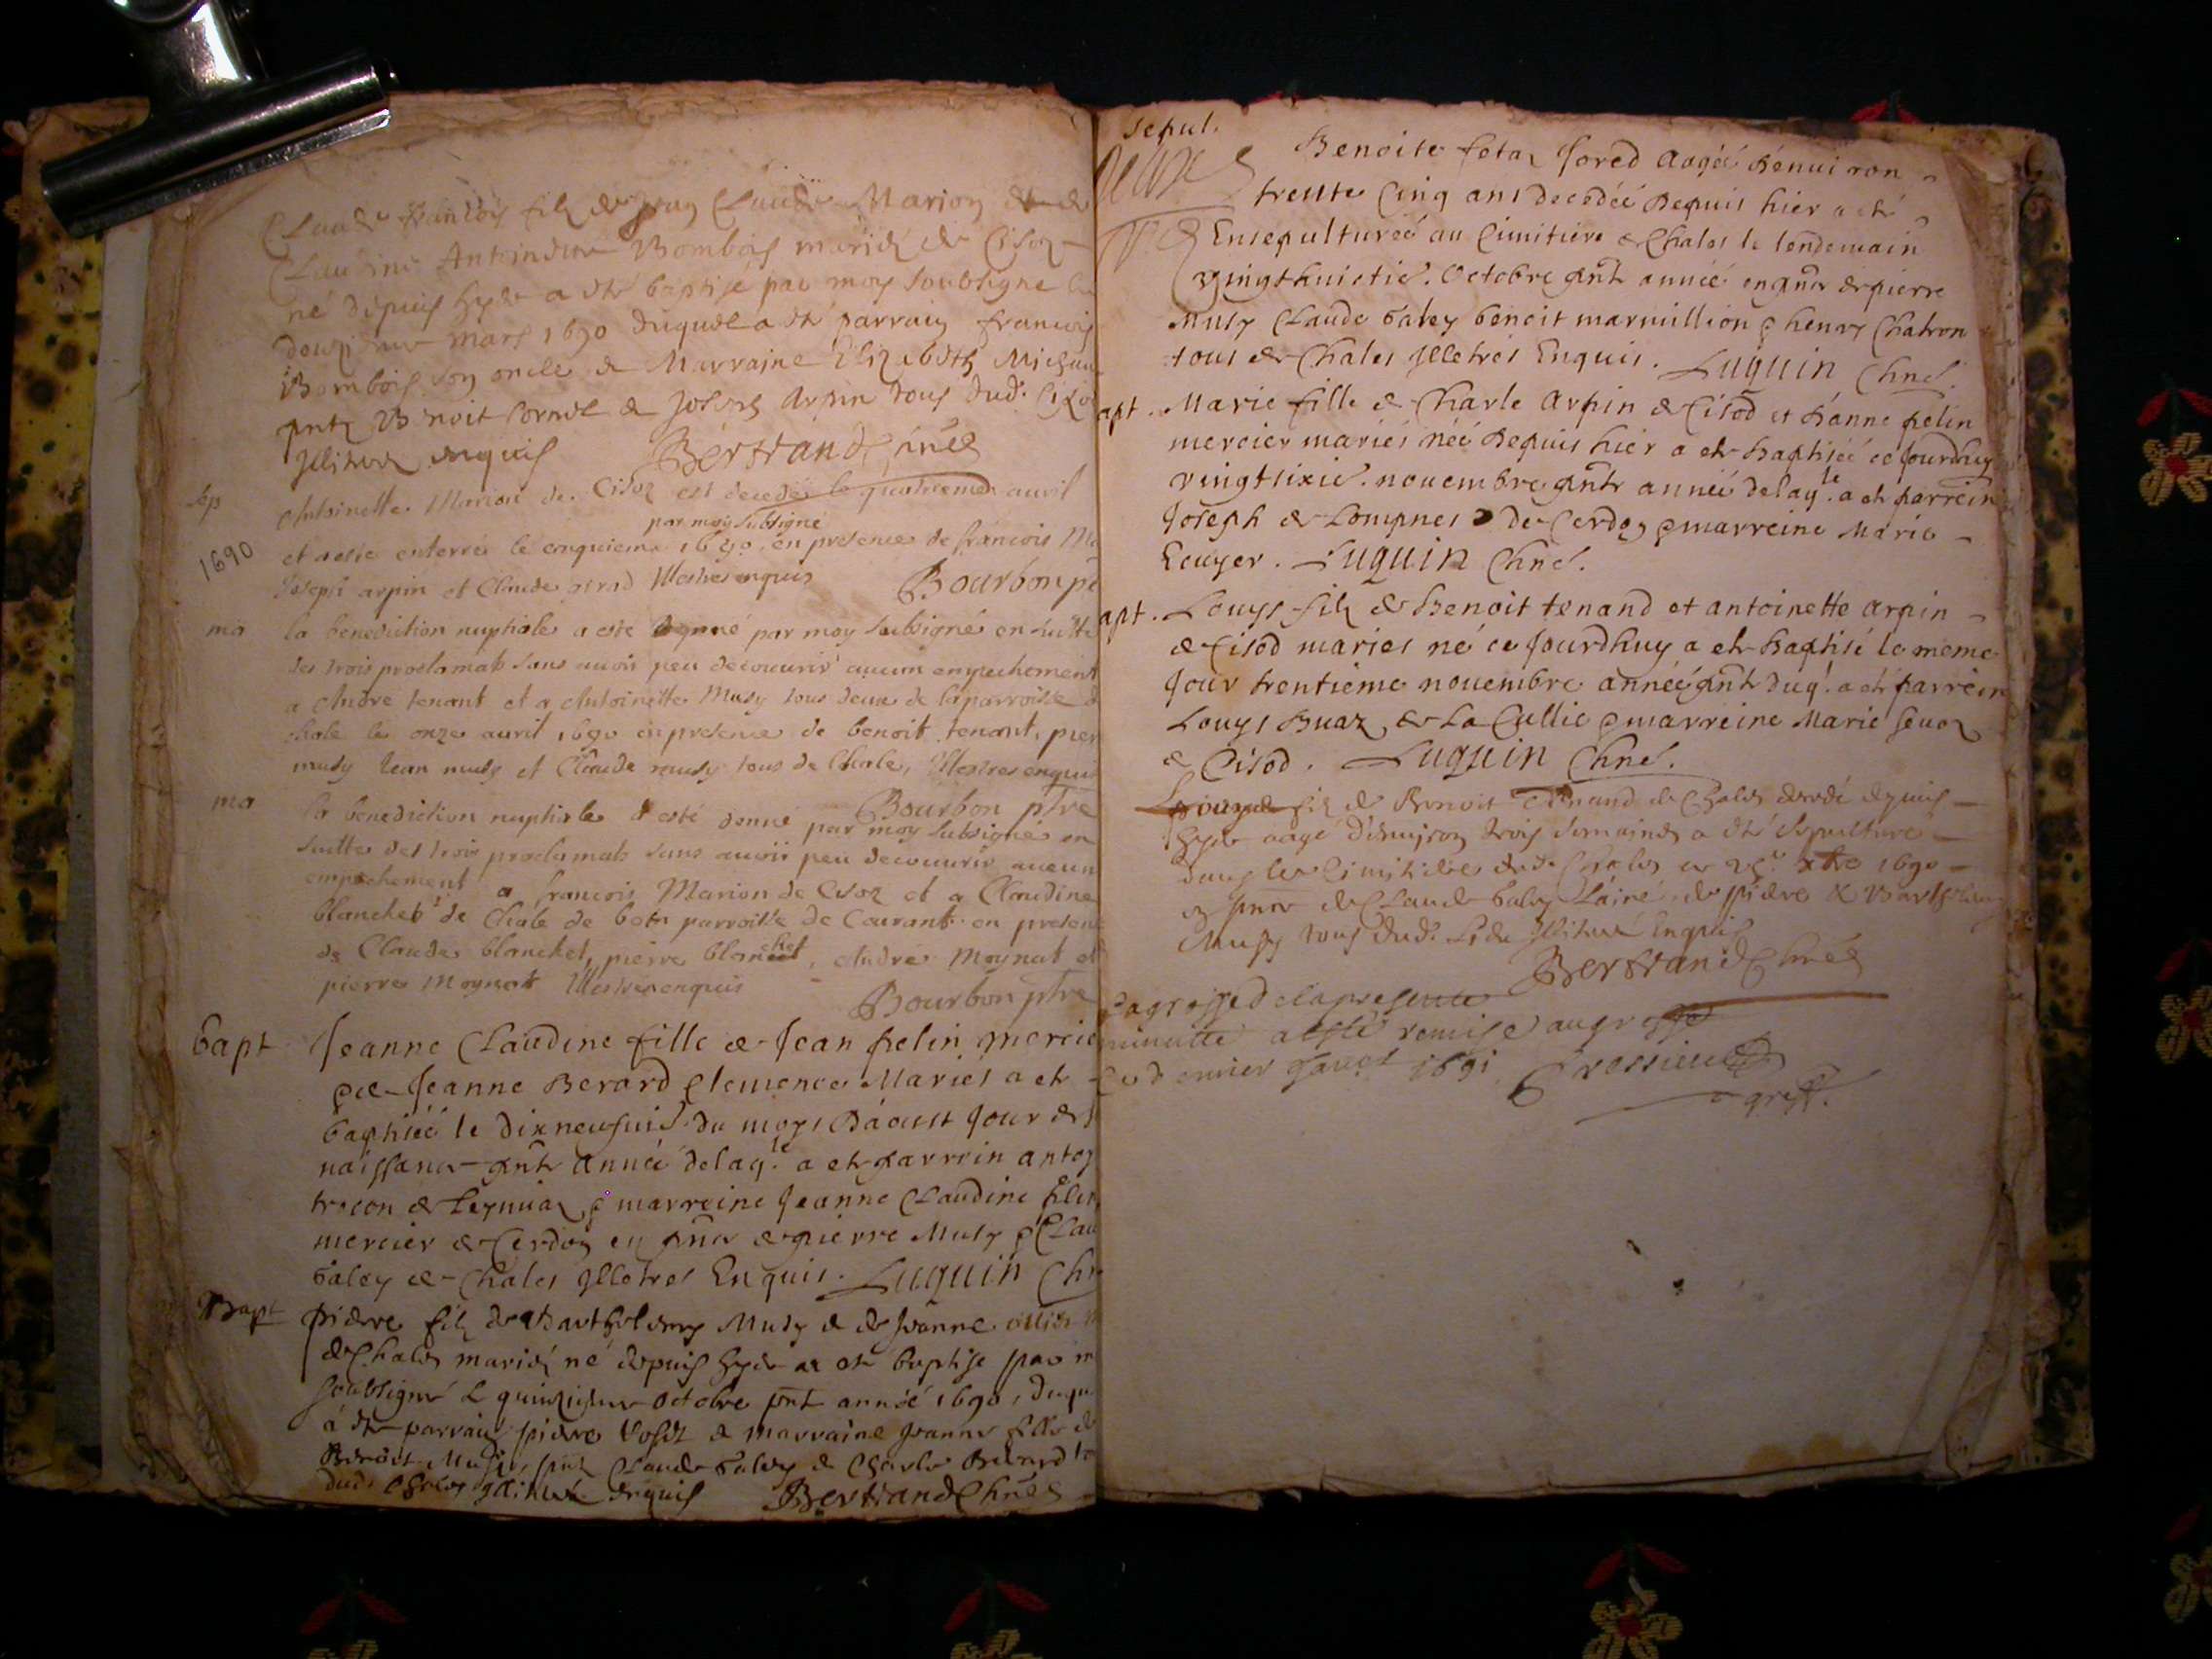 Claude francois filz de Jean Claude Marion et de
Claudine Antoinette Bombois mariéz de Cisoz
né depuis hyer a eté baptisé par moy soubsigné le
douzieme mars 1690 duquel a eté parrain francois
Bombois son oncle & Marraine Elizabeth Michau
pntz Benoit Cornet & Joseph Arpin tous dud. Cizo
Illitres enquis Bertrand Chnes
sep
1690
Antoinette Marion de Cisoz est decedee le quatrieme auril
par moy subsigné
et a esté enterrée le cinquieme 1690 en presence de francois Ma
Joseph arpin et Claude Illestres enquis Bourbon p
ma
la benediction nuptiale a esté donné par moy subsigné en suitte
des trois proclamats sans auoir peu decouurir aucun empechement
a Andre tenant et a Antoinette Musy tous deux de la parroisse d
chale le onze auril 1690 en presence de benoit tenant, pier
musy Jean musy et Claude musy tous de Chale, Illestres enquis
Bourbon ptre
ma
la benediction nuptiale a esté donné par moy subsigné en
suitte des trois proclamats sans auoir peu decouurir aucun
empechement a francois Marion de Cisoz et a Claudine
blanchet de Chale de parroisse de Courant en presen
de Claude blanchet, pierre blanchet, Andre Moynat et
pierre Moynat Illestres enquis
Bourbon ptre
bapt
Jeanne Claudine fille de Jean pelin mercie
& de Jeanne Berard Clemence Mariés a eté
baptisée le dixneufuie. du moys Dáoust Jour de s
naissance pnte année delaq.le a eté parrein antoy
trocon de Leymiaz & marreine Jeanne Claudine
mercier de Cerdon en pnce de pierre Musy & Clau
Galey de Chales Illetres Enquis. Luquin Chn
Bapt
pierre filz de Bartholemy Musy & de Jeanne
de Chales mariéz né depuis hyer a eté baptisé par m
soubsigné le quinzieme octobre pnt année 1690, duqu
a eté parrain pierre & marraine Jeanne fille de
Benoit Musy, pntz Claude Galey & Charle Berard
dud. Chales Illitres enquis Bertrand Chnes
sepul.
Benoite fetaz Jored Aagée Dénuiron
trente Cinq ans decedée Depuis hier a eté
Ensepulturée au Cimitiere de Chales le lendemain
vingthuictie. Octobre pnte année en pnce de pierre
Musy Claude Galey benoit marmillion & henry Chatron
tous de Chales Illetrés Enquis. Luquin Chne.
apt.
Marie fille de Charle Arpin de Cisod et Jéanne pelin
mercier mariés née Depuis hier a eté Baptisée ce Jourdhuy
vingtsixie. nouembre pnte année delaq.le a eté parrein
Joseph de Lompnes de Cerdon & marreine Marie
Ecuyer. Luquin Chne.
apt.
Louys filz de Benoit tenand et antoinette arpin
de Cisod mariés né ce Jourdhuy a eté Baptisé le meme
Jour trentieme nouembre année pnte duq.l a eté parrein
Louys Buaz de La Cullie & marreine Marie Seuoz
de Cisod. Luquin Chne.
Louys filz de Benoit tenand de Chales decedé depuis
hyer aagé d'enuiron trois semaines a eté sepulturé
dans le Cimitiere dud. Chales ce xbre 1690
en pnce de Claude Galey Lainé, de pierre & Barthelemy
Musy tous dud. Lieu Illitres Enquis
Bertrand Chnes
La grosse de la presente
minutte a esté remise au greffe
1691 Grossieux
greff.